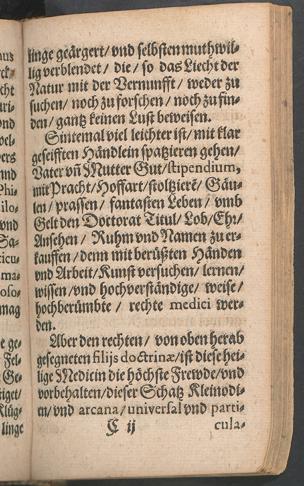 linge geärgert/ vnd selbsten muthwil-
lig verblendet/ die/ so das Liecht der
Natur mit der Vernunfft/ weder zu
suchen/ noch zu forschen/ noch zu fin-
den/ gantz keinen Lust beweisen.
Sintemal viel leichter ist/ mit klar
geseifften Händlein spatzieren gehen/
Vater vñ Mutter Gut/ stipendium,
mit Pracht/ Hoffart/ stoltzierē/ Gäu-
len/ prassen/ fantasten Leben/ vmb
Gelt den Doctorat Titul/ Lob/ Ehr/
Ansehen/ Ruhm vnd Namen zu er-
kauffen/ denn mit berüßten Händen
vnd Arbeit/ Kunst versuchen/ lernen/
wissen/ vnd hochverständige/ weise/
hochberümbte/ rechte medici wer-
den.
Aber den rechten/ von oben herab
gesegneten filijs doctrinæ/ ist diese hei-
lige Medicin die höchste Frewde/ vnd
vorbehalten/ dieser Schatz Kleinodi-
en/ vnd arcana/ universal vnd parti-
C ij cula-